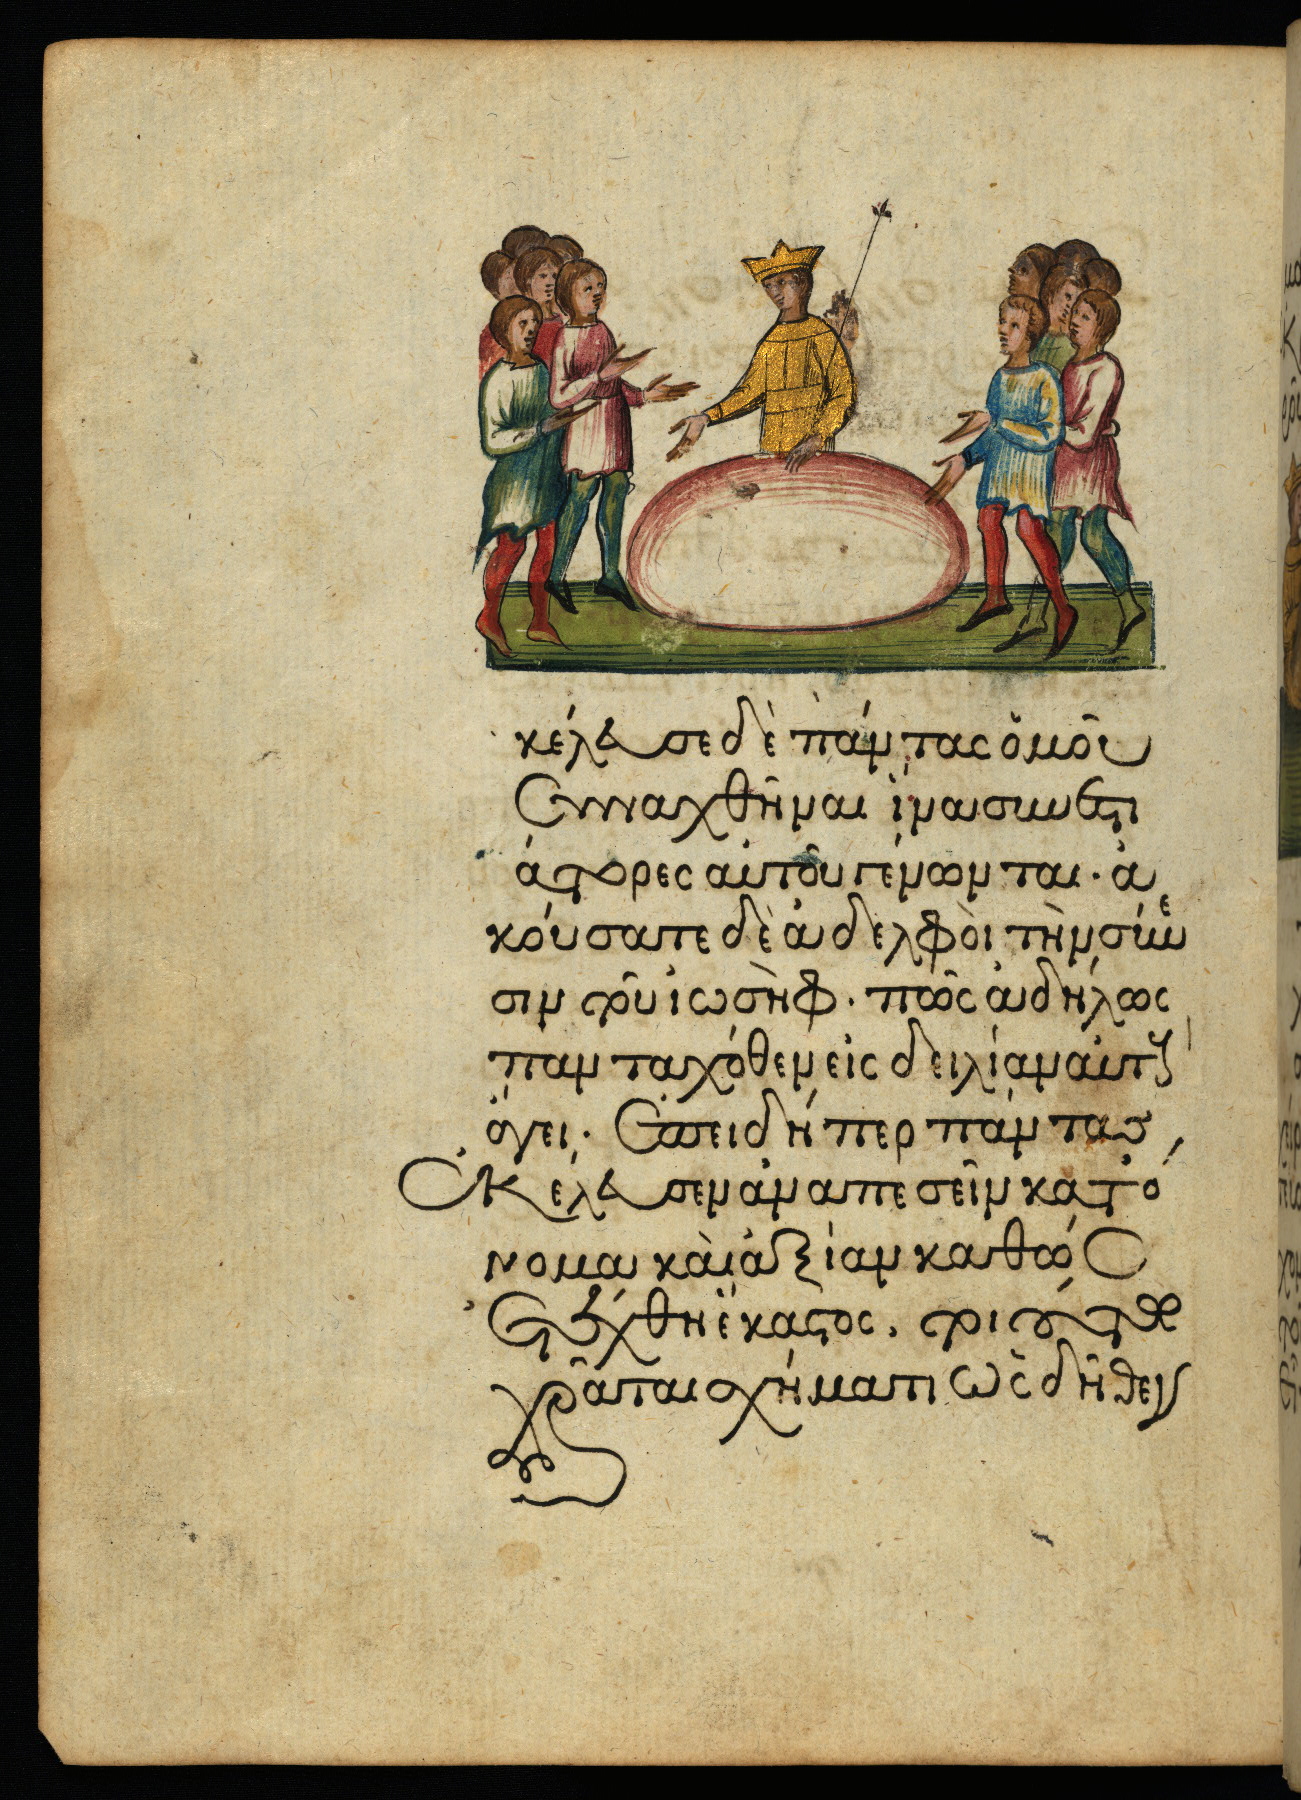 κέλευσε δὲ πάντας ὁμοῦ
Συναχθῆναι ἵνα συνεστι
άτορες αὐτοῦ γένωνται · ἀ
κούσατε δὲ ἀδελφοὶ τὴν σύνε
σιν τοῦ ἰωσὴφ · πῶς ἀδήλως
πανταχόθεν εἰς δειλίαν αὐτοὺς
ἄγει · Ἐπειδήπερ πάντας
Ἐκέλευσεν ἀναπεσεῖν κατ ὀ
νομα καὶ ἀξίαν καθὼς
Ἐτέχθη ἕκαστος. τοιούτω δὲ
χρᾶται σχήματι ὡς δῆθεν